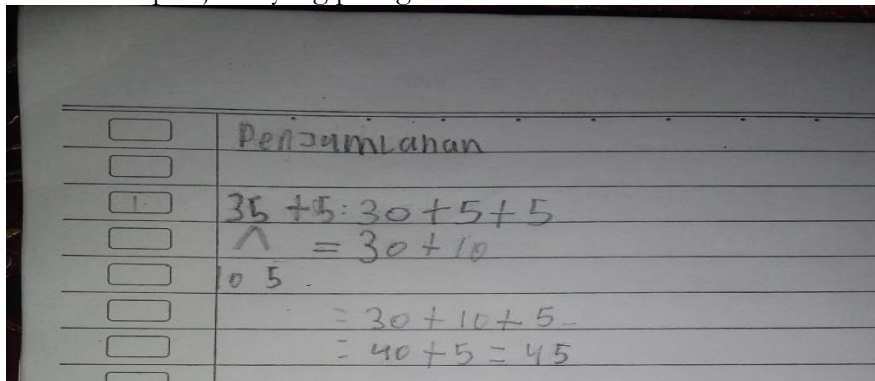 Penjumlahan
1. 35 +5: 30 + 5 + 5
= 30 + 10
10 5 .
= 30 + 10 + 5
= 40 + 5 = 45